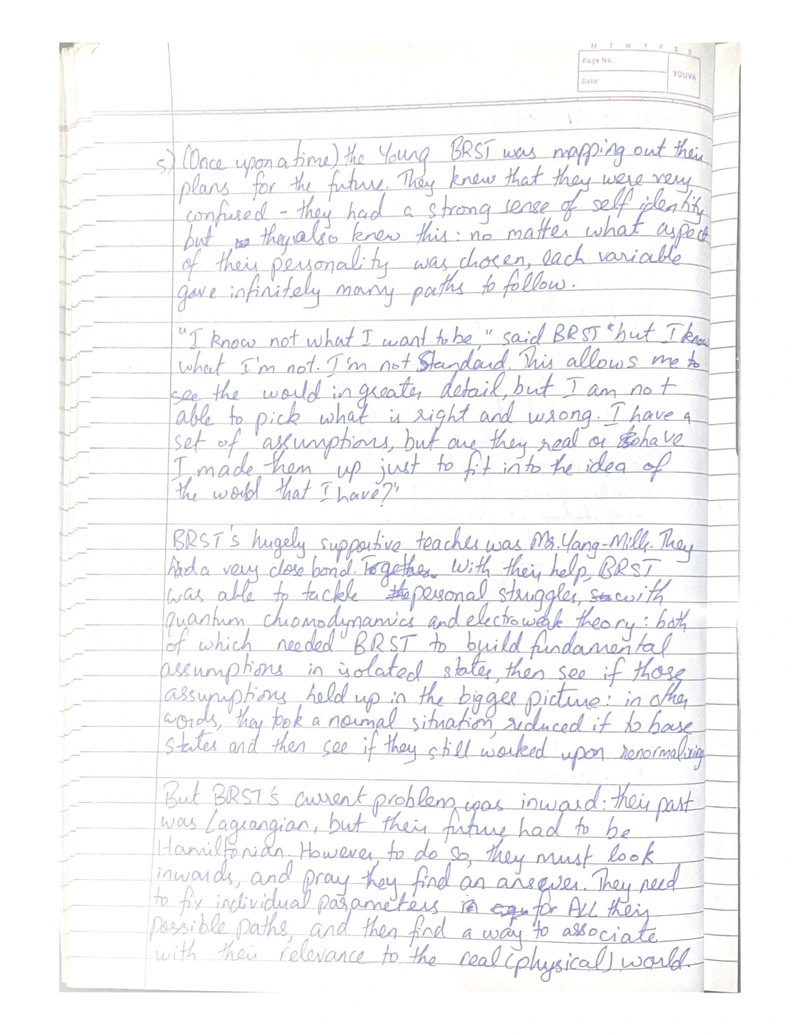 M T W T F S S
Page No.
Date:
YOUVA
5) (Once upon a time) the Young BRST was mapping out their
plans for the future. They knew that they were very
confused - they had a strong sense of self identity
but they also knew this: no matter what aspect
of their personality was chosen, each variable
gave infinitely many paths to follow.
"I know not what I want to be," said BRST "but I know
what I'm not. I'm not Standard. This allows me to
see the world in greater detail, but I am not
able to pick what is right and wrong. I have a
set of assumptions, but are they real or have
I made them up just to fit into the idea of
the world that I have?"
BRST's hugely supportive teacher was Mr. Yang-Mills. They
had a very close bond. Together. With their help, BRST
was able to tackle personal struggles, with
quantum chromodynamics and electroweak theory: both
of which needed BRST to build fundamental
assumptions in isolated states, then see if those
assumptions held up in the bigger picture: in other
words, they took a normal situation, reduced it to base
states and then see if they still worked upon renormalizing
But BRST's current problem was inward: their past
was Lagrangian, but their future had to be
Hamiltonian. However, to do so, they must look
inwards, and pray they find an answer. They need
to fix individual parameters for ALL their
possible paths, and then find a way to associate
with their relevance to the real (physical) world.